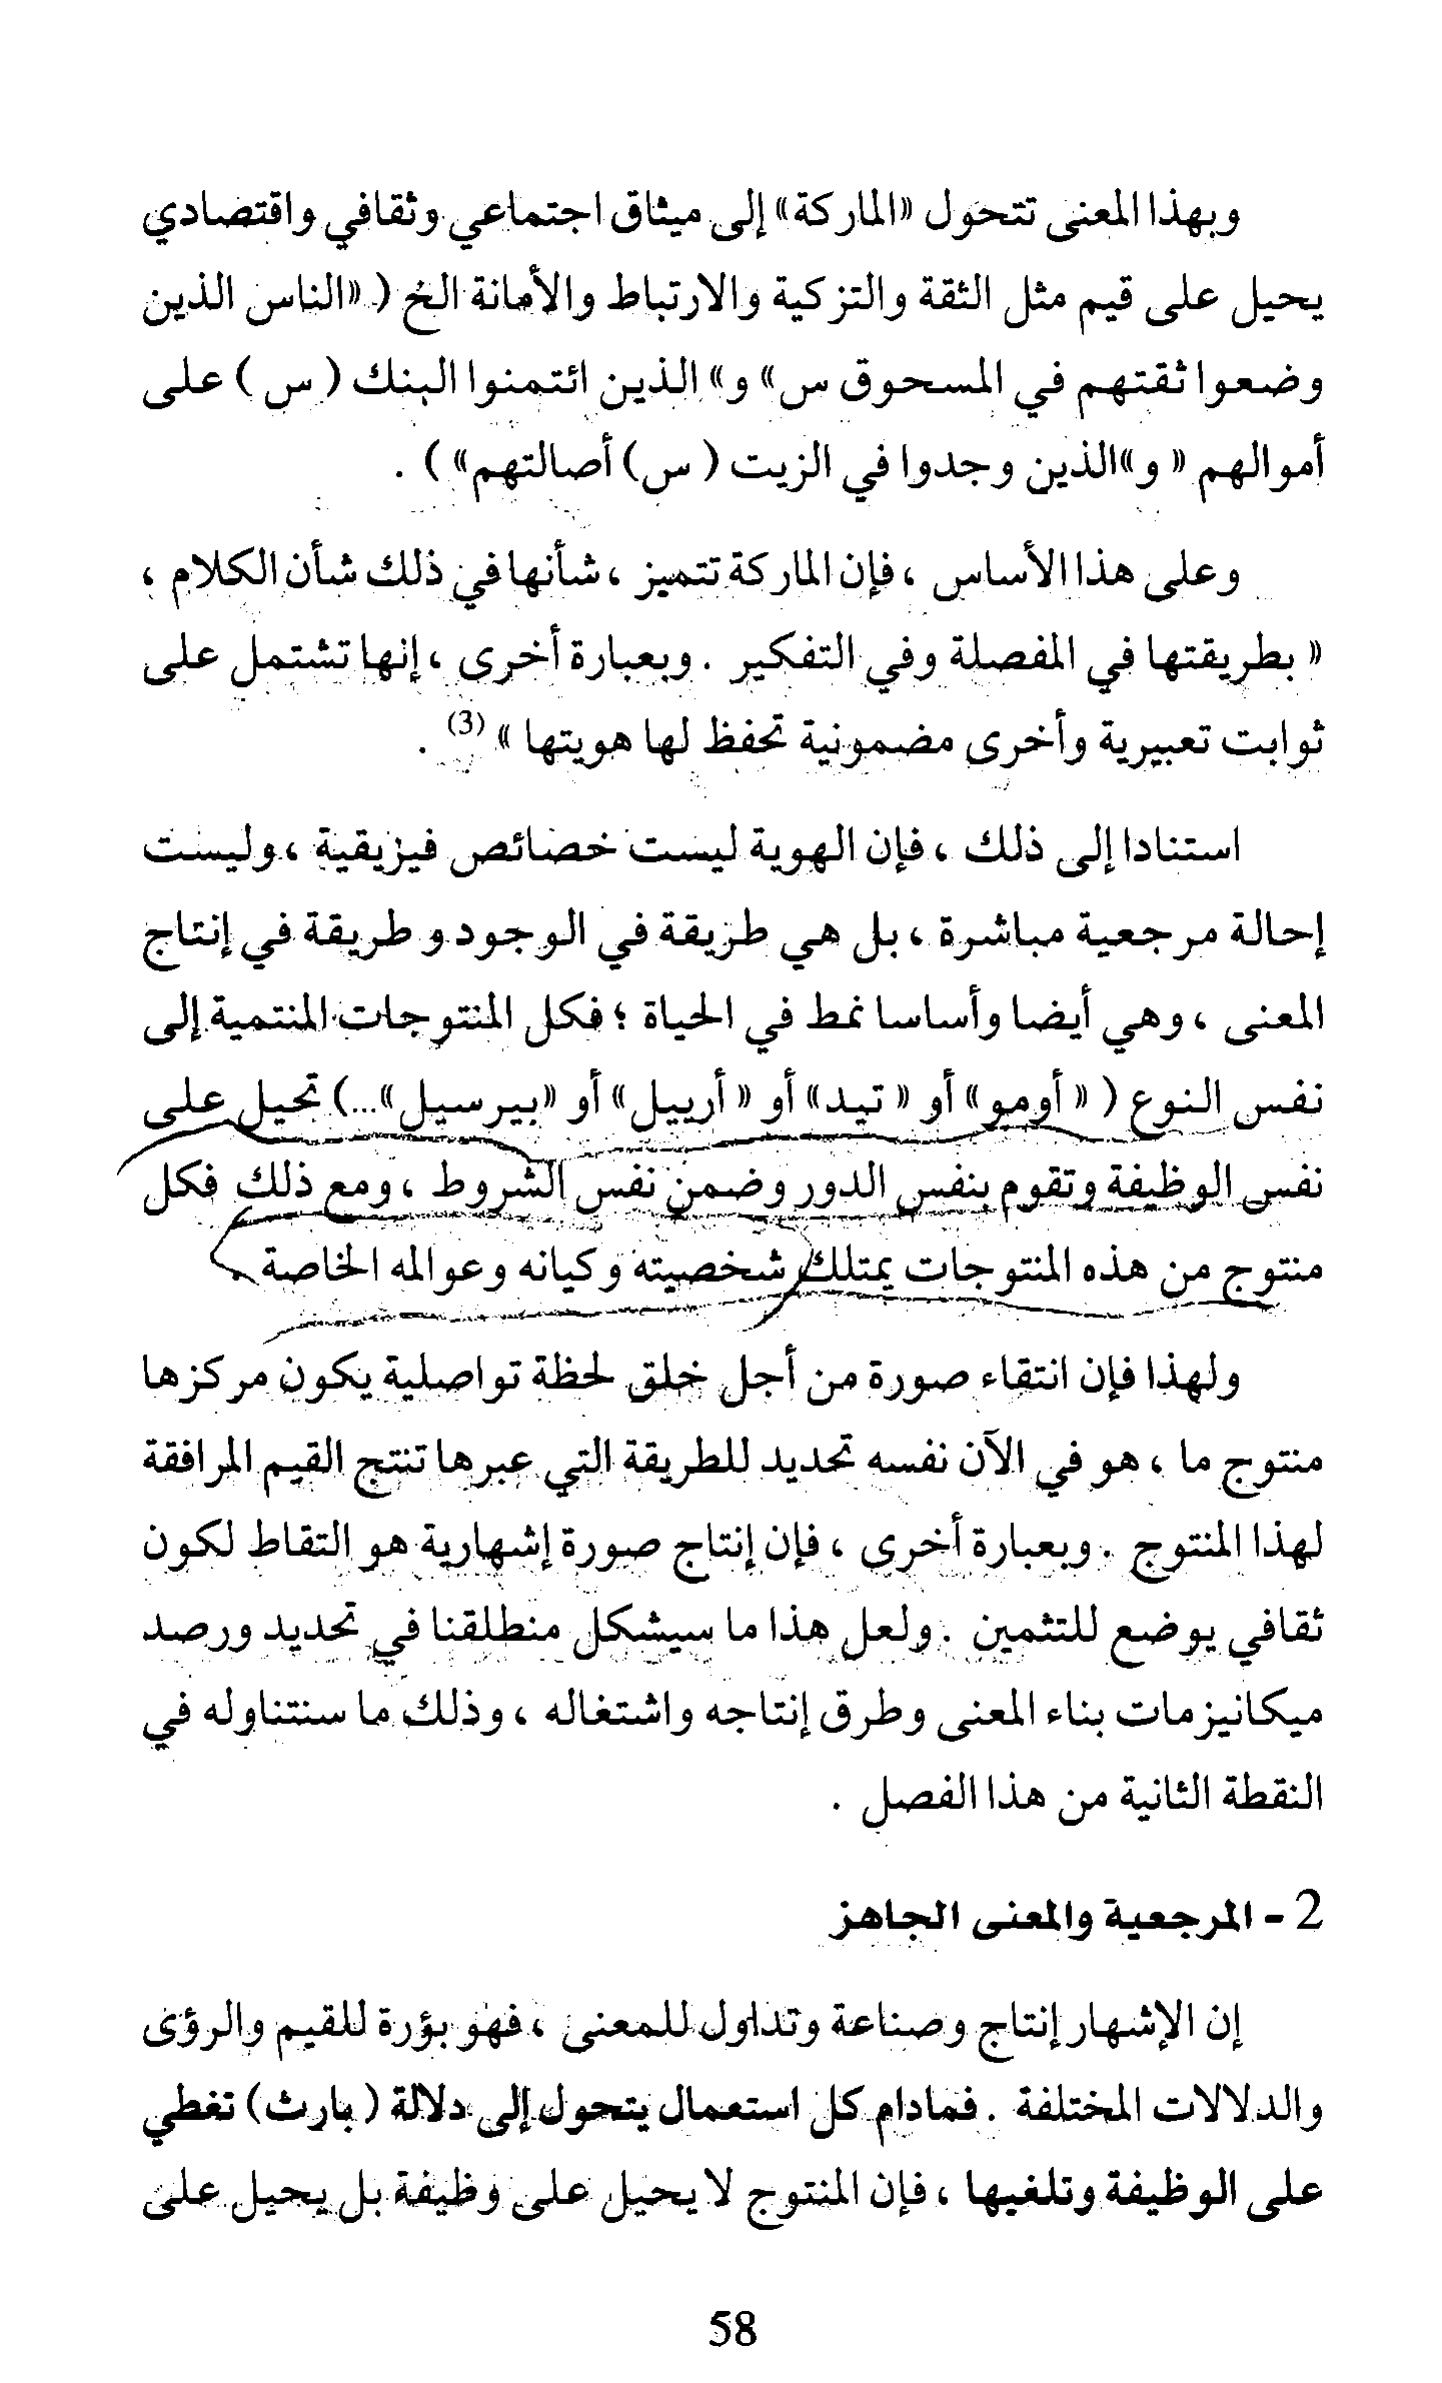 وبهذا المعنى تتحول «الماركة» إلى ميثاق اجتماعي وثقافي واقتصادي
يحيل على قيم مثل الثقة والتزكية والارتباط والأمانة الخ ( «الناس الذين
وضعوا ثقتهم في المسحوق س» و« الذين ائتمنوا البنك ( س ) على
أموالهم « و»الذين وجدوا في الزيت ( س) أصالتهم» ) .
وعلى هذا الأساس ، فإن الماركة تتميز ، شأنها في ذلك شأن الكلام ،
« بطريقتها في المفصلة وفي التفكير . وبعبارة أخرى ، إنها تشتمل على
ثوابت تعبيرية وأخرى مضمونية تحفظ لها هويتها » (3) .
استنادا إلى ذلك ، فإن الهوية ليست خصائص فيزيقية ، وليست
إحالة مرجعية مباشرة ، بل هي طريقة في الوجود و طريقة في إنتاج
المعنى ، وهي أيضا وأساسا نمط في الحياة ؛ فكل المنتوجات المنتمية إلى
نفس النوع ( « أومو» أو « تيد» أو « أرييل» أو «بيرسيل »...) تحيل على
نفس الوظيفة وتقوم بنفس الدور وضمن نفس الشروط ، ومع ذلك فكل
منتوج من هذه المنتوجات يمتلك شخصيته وكيانه وعوالمه الخاصة .
ولهذا فإن انتقاء صورة من أجل خلق لحظة تواصلية يكون مركزها
منتوج ما ، هو في الآن نفسه تحديد للطريقة التي عبرها تنتج القيم المرافقة
لهذا المنتوج . وبعبارة أخرى ، فإن إنتاج صورة إشهارية هو التقاط لكون
ثقافي يوضع للتثمين . ولعل هذا ما سيشكل منطلقنا في تحديد ورصد
ميكانيزمات بناء المعنى وطرق إنتاجه واشتغاله ، وذلك ما سنتناوله في
النقطة الثانية من هذا الفصل .
2 - المرجعية والمعنى الجاهز
إن الإشهار إنتاج وصناعة وتداول للمعنى ، فهو بؤرة للقيم والرؤى
والدلالات المختلفة . فمادام كل استعمال يتحول إلى دلالة ( بارث) تغطي
على الوظيفة وتلغيها ، فإن المنتوج لا يحيل على وظيفة بل يحيل على
58